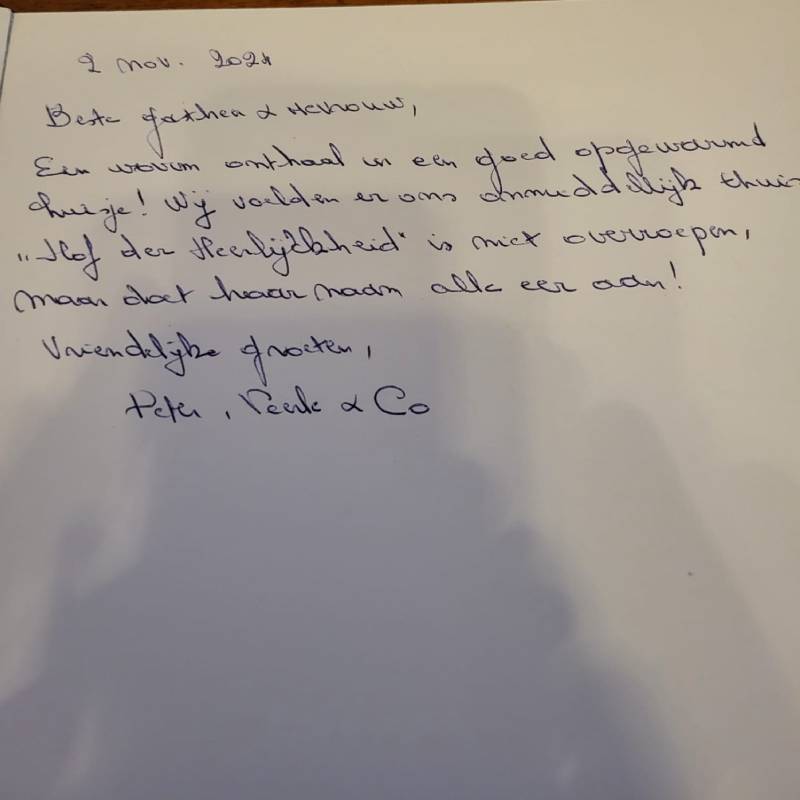 2 nov. 2021
Beste gastheer &
Een warm onthaal in een goed opgewarmd
huisje! Wij voelden er ons onmiddellijk thuis
"Hof der Heerlijckheid" is niet overroepen,
maar doet haar naam alle eer aan!
Vriendelijke groeten,
Peter, Veerle & Co